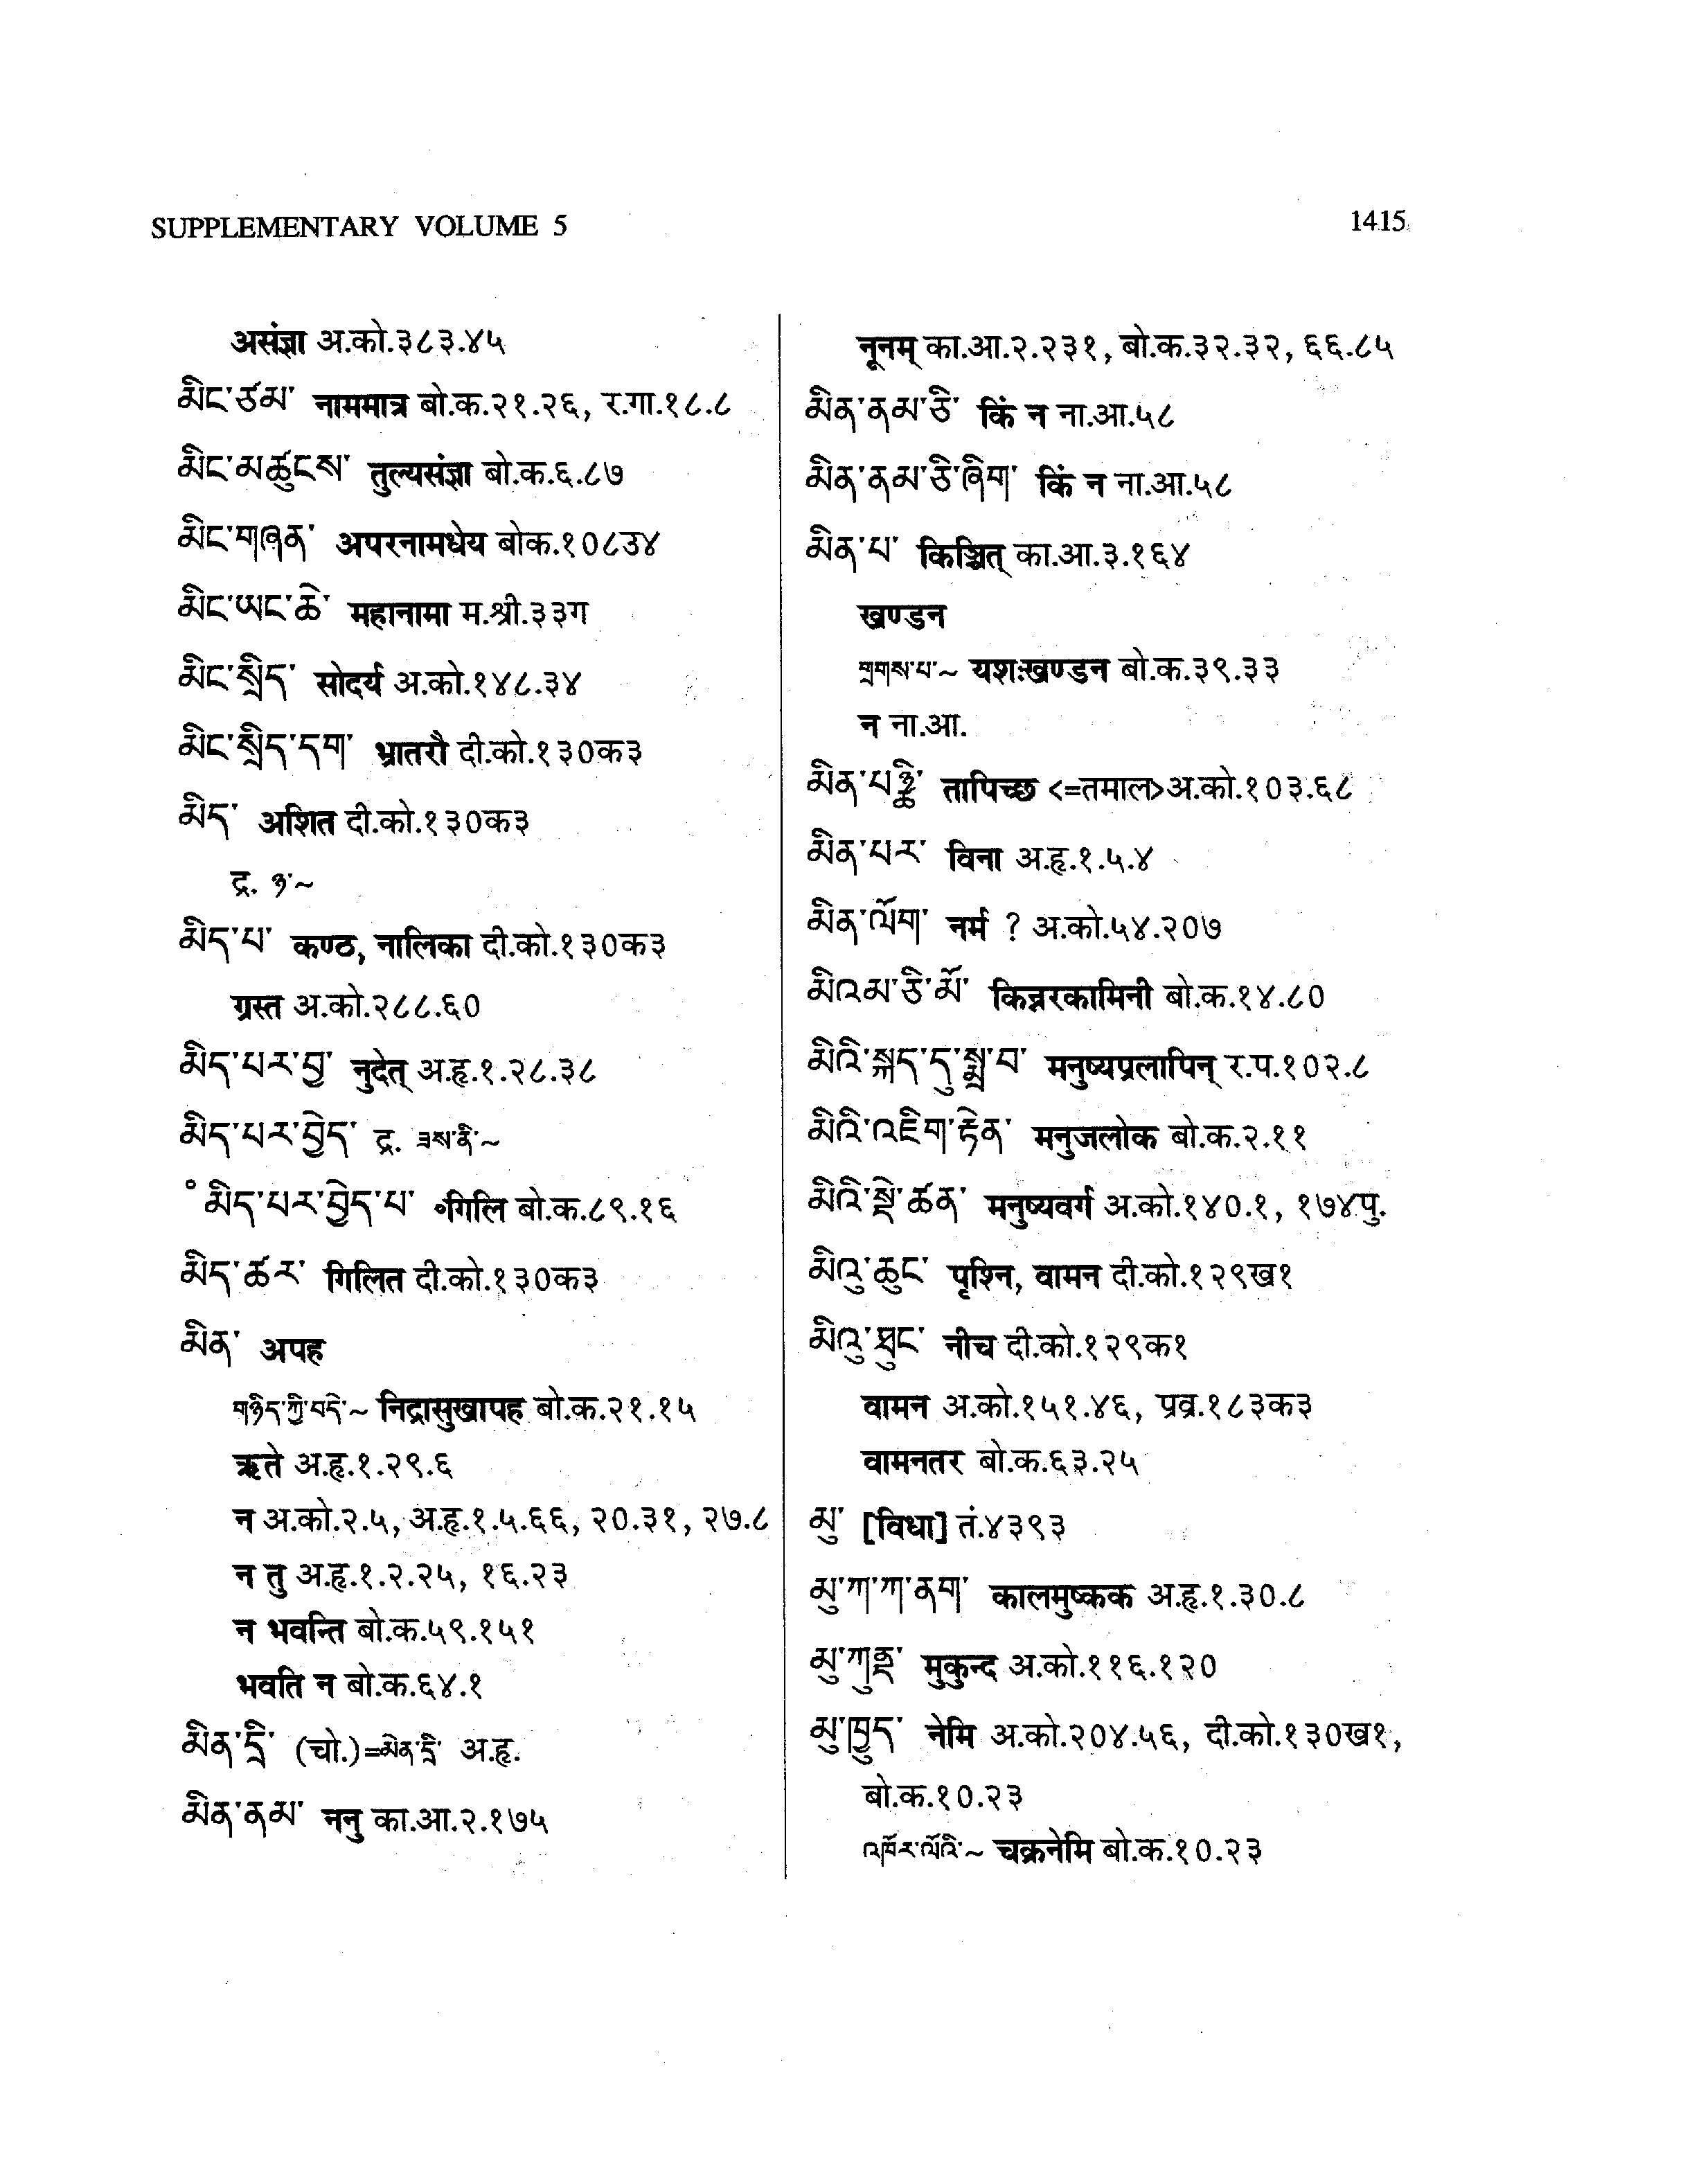 SUPPLEMENTARY VOLUME 5
1415
असंज्ञा अ.को.३८३.४५
མིང་ཙམ་ नाममात्र बो.क.२१.२६, र.गा.१८.८
མིང་མཚུངས་ तुल्यसंज्ञा बो.क.६.८७
མིང་གཞན་ अपरनामधेय बोक.१०८३४
མིང་ཡང་ཆེ་ महानामा म.श्री.३३ग
མིང་སྲིད་ सोदर्य अ.को.१४८.३४
མིང་སྲིད་དག་ भ्रातरौ दी.को.१३०क३
མིད་ अशित दी.को.१३०क३
द्र. ཉ་~
མིད་པ་ कण्ठ, नालिका दी.को.१३०क३
ग्रस्त अ.को.२८८.६०
མིད་པར་བྱ་ नुदेत् अ.हृ.१.२८.३८
མིད་པར་བྱེད་ द्र. ཟས་ནི་~
° མིད་པར་བྱེད་པ་ ॰गिलि बो.क.८९.१६
མིད་ཚར་ गिलित दी.को.१३०क३
མིན་ अपह
གཉིད་ཀྱི་བདེ་~ निद्रासुखापह बो.क.२१.१५
ऋते अ.हृ.१.२९.६
न अ.को.२.५, अ.हृ.१.५.६६, २०.३१, २७.८
न तु अ.हृ.१.२.२५, १६.२३
न भवन्ति बो.क.५९.१५१
भवति न बो.क.६४.१
མིན་དྲི་ (चो.)=མེན་དྲི་ अ.हृ.
མིན་ནམ་ ननु का.आ.२.१७५
नूनम् का.आ.२.२३१, बो.क.३२.३२, ६६.८५
མིན་ནམ་ཅི་ किं न ना.आ.५८
མིན་ནམ་ཅི་ཞིག་ किं न ना.आ.५८
མིན་པ་ किञ्चित् का.आ.३.१६४
खण्डन
གྲགས་པ་~ यशःखण्डन बो.क.३९.३३
न ना.आ.
མིན་པཉྪི་ तापिच्छ <=तमाल>अ.को.१०३.६८
མིན་པར་ विना अ.हृ.१.५.४
མིན་ལོག་ नर्म ? अ.को.५४.२०७
མིའམ་ཅི་མོ་ किन्नरकामिनी बो.क.१४.८०
མིའི་སྐད་དུ་སྨྲ་བ་ मनुष्यप्रलापिन् र.प.१०२.८
མིའི་འཇིག་རྟེན་ मनुजलोक बो.क.२.११
མིའི་སྡེ་ཚན་ मनुष्यवर्ग अ.को.१४०.१, १७४पु.
མིའུ་ཆུང་ पृश्नि, वामन दी.को.१२९ख१
མིའུ་ཐུང་ नीच दी.को.१२९क१
वामन अ.को.१५१.४६, प्रव्र.१८३क३
वामनतर बो.क.६३.२५
མུ་ [विधा] तं.४३९३
མུ་ཀ་ཀ་ནག་ कालमुष्कक अ.हृ.१.३०.८
མུ་ཀུནྡ་ मुकुन्द अ.को.११६.१२०
མུ་ཁྱུད་ नेमि अ.को.२०४.५६, दी.को.१३०ख१,
बो.क.१०.२३
འཁོར་ལོའི་~ चक्रनेमि बो.क.१०.२३